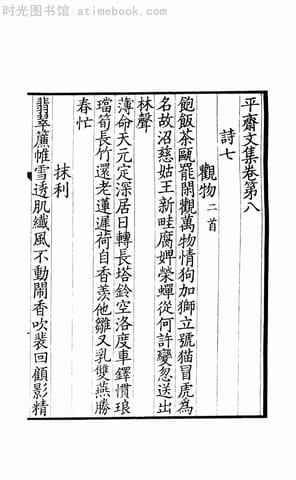 时光图书馆 - atimebook.com
平齋文集卷第八
詩七
觀物二首
飽飯茶甌罷閑觀萬物情狗加獅立號猫冒虎為
名故沼慈姑王新畦腐婢榮蟬從何許變忽送出
林聲
薄命天元定深居日轉長塔鈴空洛度車鐸慣琅
璫筍長竹還老蓮遲荷自香羨他雛又乳雙燕勝
春忙
抹利
翡翠簾帷雪透肌纖風不動鬧香吹裴回顧影精